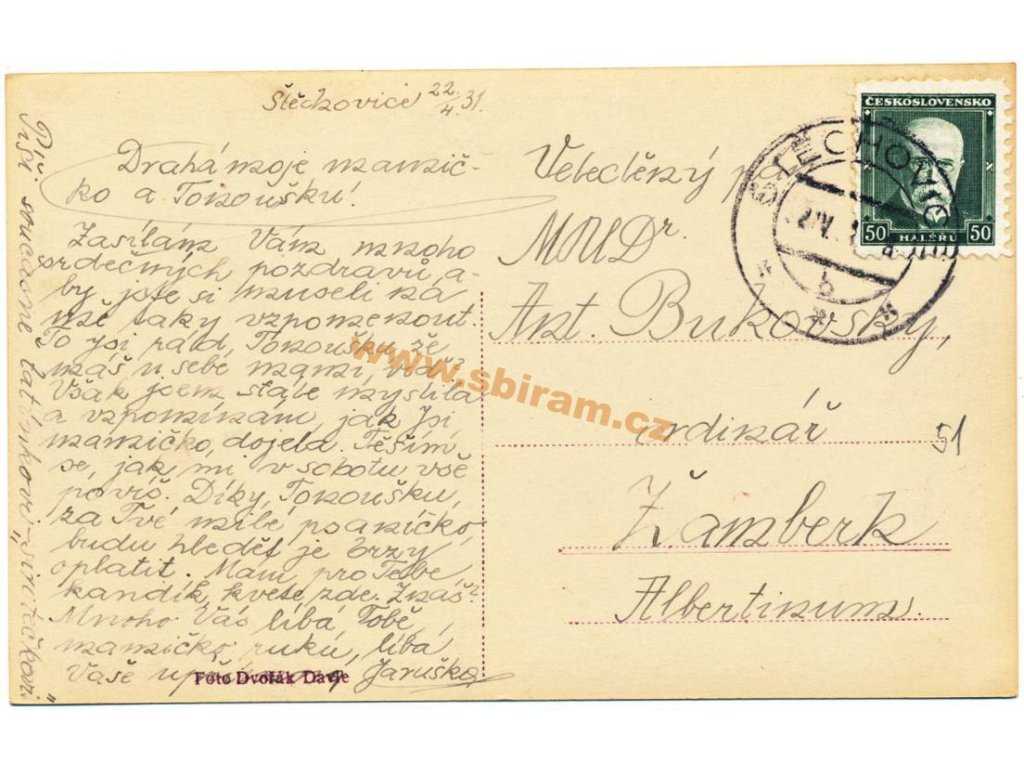 Štěchovice 22/4 31.
Drahá moje mamič-
ko a Tonoušku!
Zasílám Vám mnoho
srdečných pozdravů, a-
by jste si museli na
mne taky vzpomenout.
To jsi rád, Tonoušku, že
máš u sebe mami, viď?
Však jsem stále myslila
a vzpomínám, jak Jsi,
mamičko, dojela. Těším
se, jak mi v sobotu vše
povíš. Díky, Tonoušku,
za Tvé milé psaníčko,
budu hledět je brzy
oplatit. Mám pro Tebe
kandík, kvete zde. Znáš?
Mnoho Vás líbá, Tobě,
mamičko, ruku, líbá
Vaše upřímná Jaruška
Píši současně tatínkovi - „sirotečkovi."
Foto Dvořák Davle
Velectěný pán
MUDr.
Ant. Bukovský,
ordinář
51
Žamberk
Albertinum.
ČESKOSLOVENSKO
50 HALÉŘŮ 50
ŠTĚCHOVICE
b
www.sbiram.cz